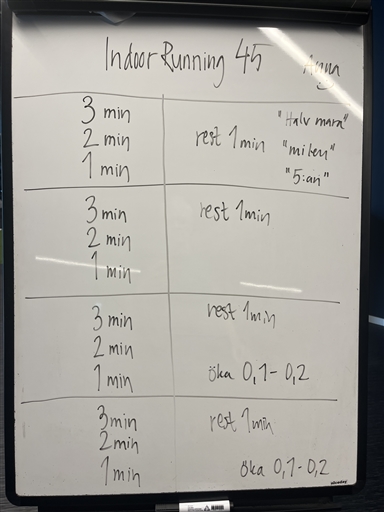 Indoor Running 45 Anya
3 min "Halv mara"
2 min rest 1 min "milen"
1 min "5:an"
3 min rest 1 min
2 min
1 min
3 min rest 1 min
2 min
1 min öka 0,1 - 0,2
3 min rest 1 min
2 min
1 min öka 0,1 - 0,2